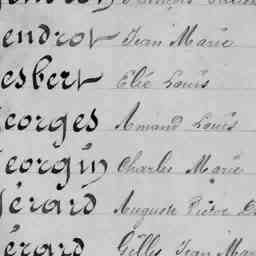 endrot Jean Marie
esbert Elie Louis
eorges Amand Louis
eorgin Charles Marie
érard Auguste Pierre
érard Gilles Jean Mar